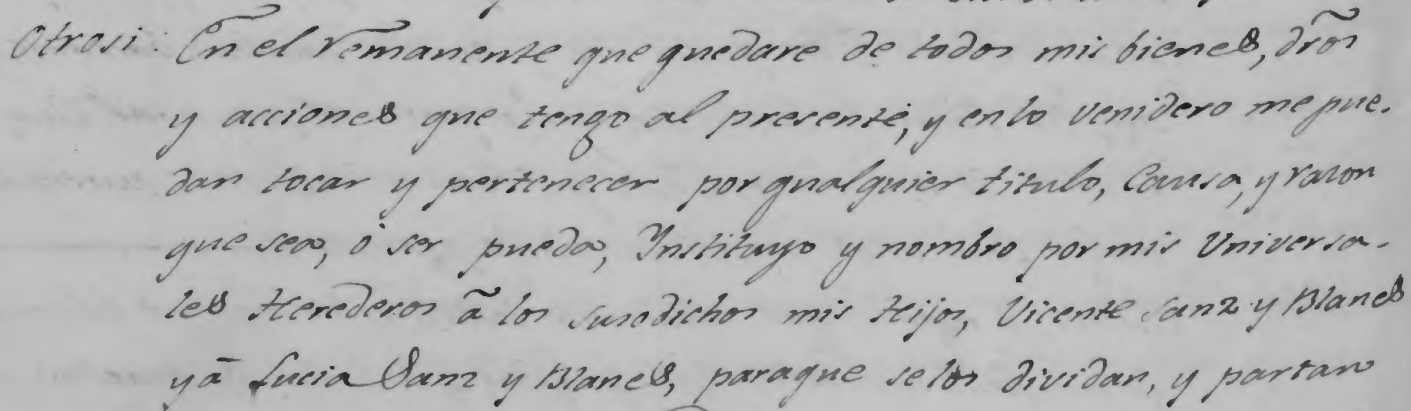 Otrosi: En el remanente que quedare de todos mis bienes, dros
y acciones que tengo al presente, y en lo venidero me pue-
dan tocar y pertenecer por qualquier titulo, Causa, y razon
que sea, ó ser pueda, Instituyo y nombro por mis Universa-
les Herederos ã los susodichos mis Hijos, Vicente Sanz y Blanes
y ã Lucia Sanz y Blanes, paraque se los dividan, y partan